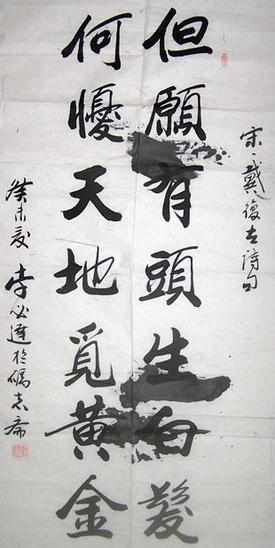 宋戴復古詩句
但願有頭生白髮
何懮天地覓黃金
癸未夏李必達於礪志斋